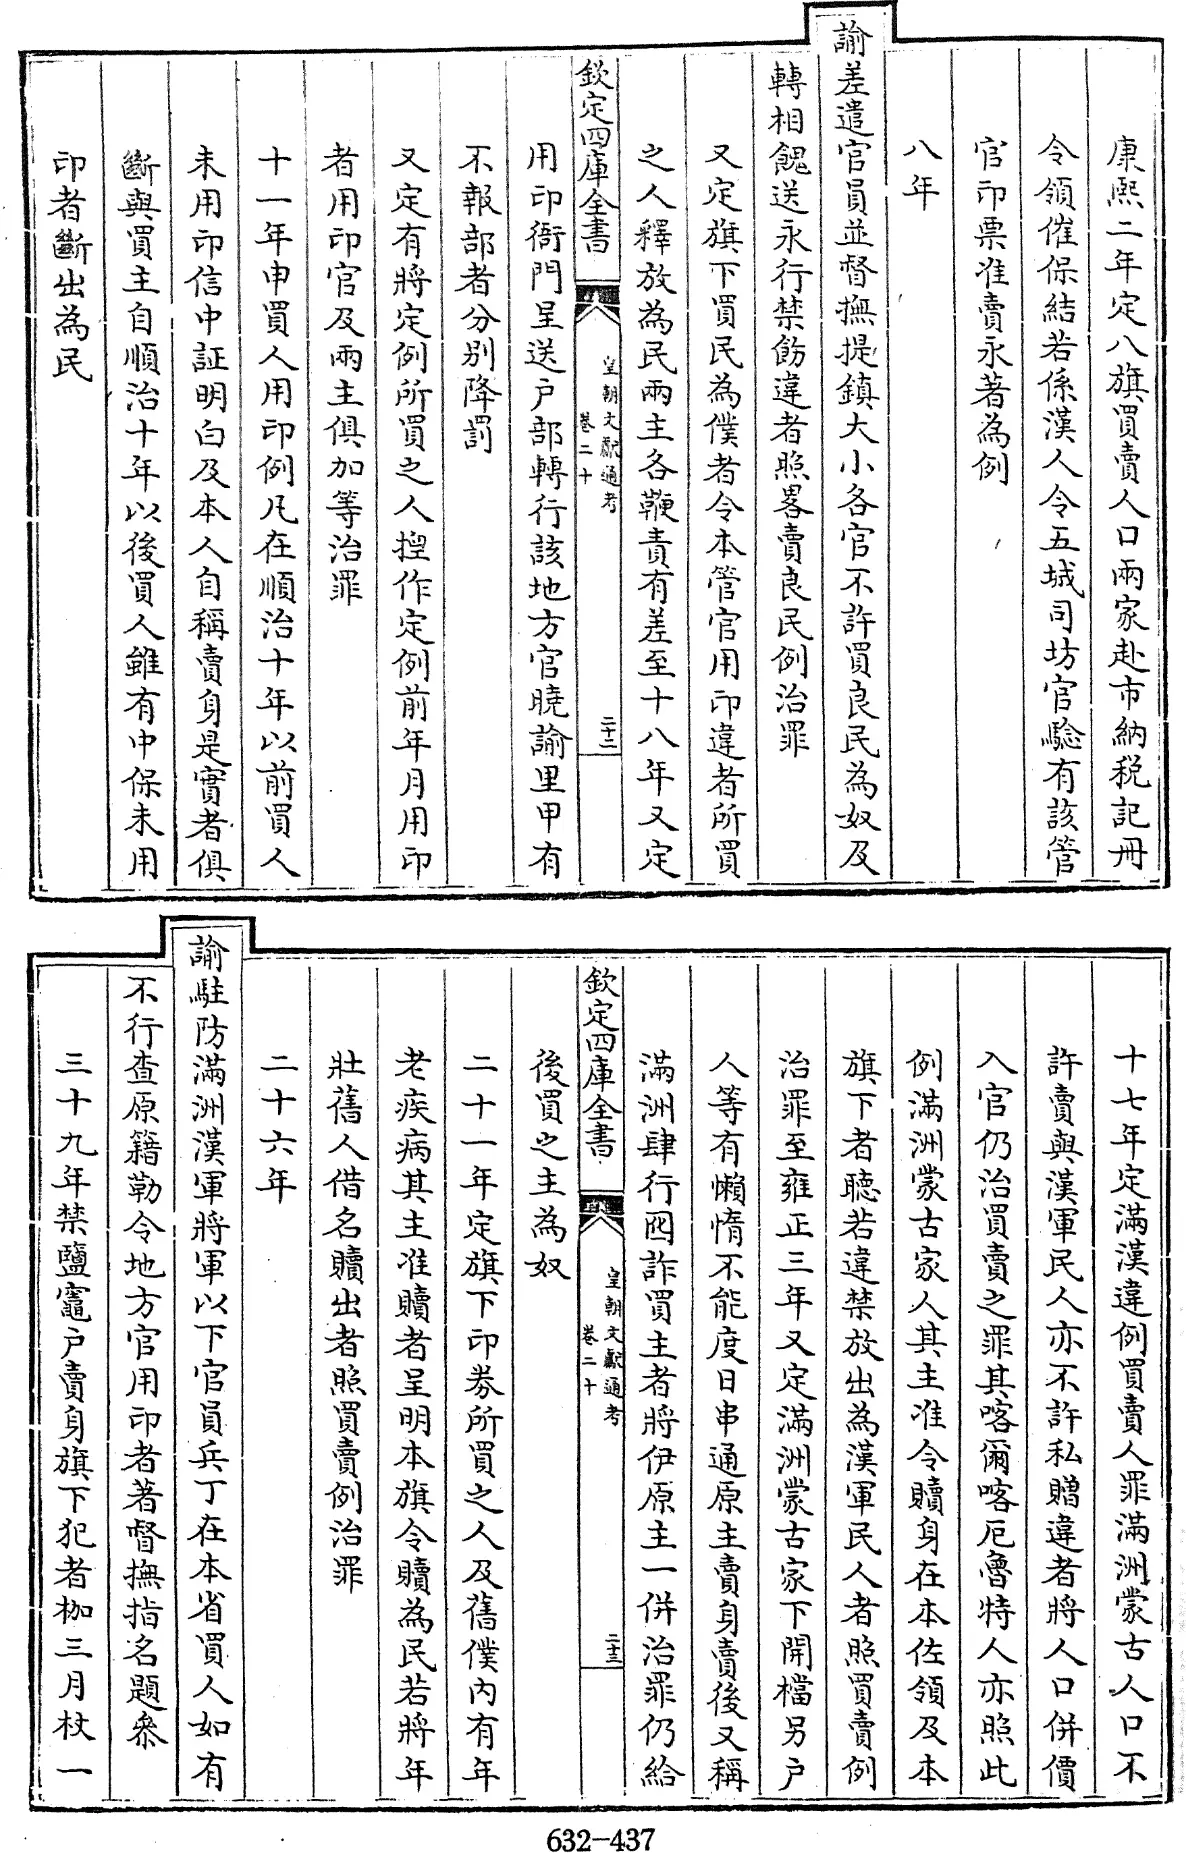 康熙二年定八旗買賣人口兩家赴市納稅記冊
令領催保結若係漢人令五城司坊官驗有該管
官印票准賣永著為例
八年
諭差遣官員並督撫提鎮大小各官不許買良民為奴及
轉相餽送永行禁飭違者照畧賣良民例治罪
又定旗下買民為僕者令本管官用印違者所買
之人釋放為民兩主各鞭責有差至十八年又定
欽定四庫全書
皇朝文獻通考
卷二十
二十二
用印衙門呈送户部轉行該地方官曉諭里甲有
不報部者分别降罰
又定有將定例所買之人捏作定例前年月用印
者用印官及兩主俱加等治罪
十一年申買人用印例凡在順治十年以前買人
未用印信中証明白及本人自稱賣身是實者俱
斷與買主自順治十年以後買人雖有中保未用
印者斷出為民
十七年定滿漢違例買賣人罪滿洲蒙古人口不
許賣與漢軍民人亦不許私贈違者將人口併價
入官仍治買賣之罪其喀爾喀厄魯特人亦照此
例滿洲蒙古家人其主准令贖身在本佐領及本
旗下者聽若違禁放出為漢軍民人者照買賣例
治罪至雍正三年又定滿洲蒙古家下開檔另户
人等有懶惰不能度日串通原主賣身賣後又稱
滿洲肆行凶詐買主者將伊原主一併治罪仍給
欽定四庫全書
皇朝文獻通考
卷二十
二十三
後買之主為奴
二十一年定旗下印劵所買之人及舊僕內有年
老疾病其主准贖者呈明本旗令贖為民若將年
壯舊人借名贖出者照買賣例治罪
二十六年
諭駐防滿洲漢軍將軍以下官員兵丁在本省買人如有
不行查原籍勒令地方官用印者著督撫指名題叅
三十九年禁鹽竈户賣身旗下犯者枷三月杖一
632-437